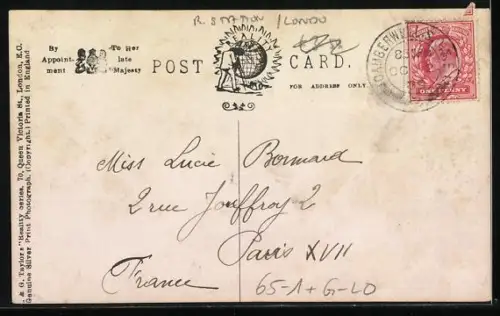 R. STATION / LONDON
By Appointment To Her late Majesty
POST CARD.
REALITY
FOR ADDRESS ONLY.
CAMBERWELL
ONE PENNY
& G. Taylor's "Reality" Series, 70, Queen Victoria St., London, E.C.
Genuine Silver Print Photograph. (Copyright.) Printed in England
Miss Lucie Bernard
2 rue Jouffroy 2
Paris XVII
France
65-1+G-LO